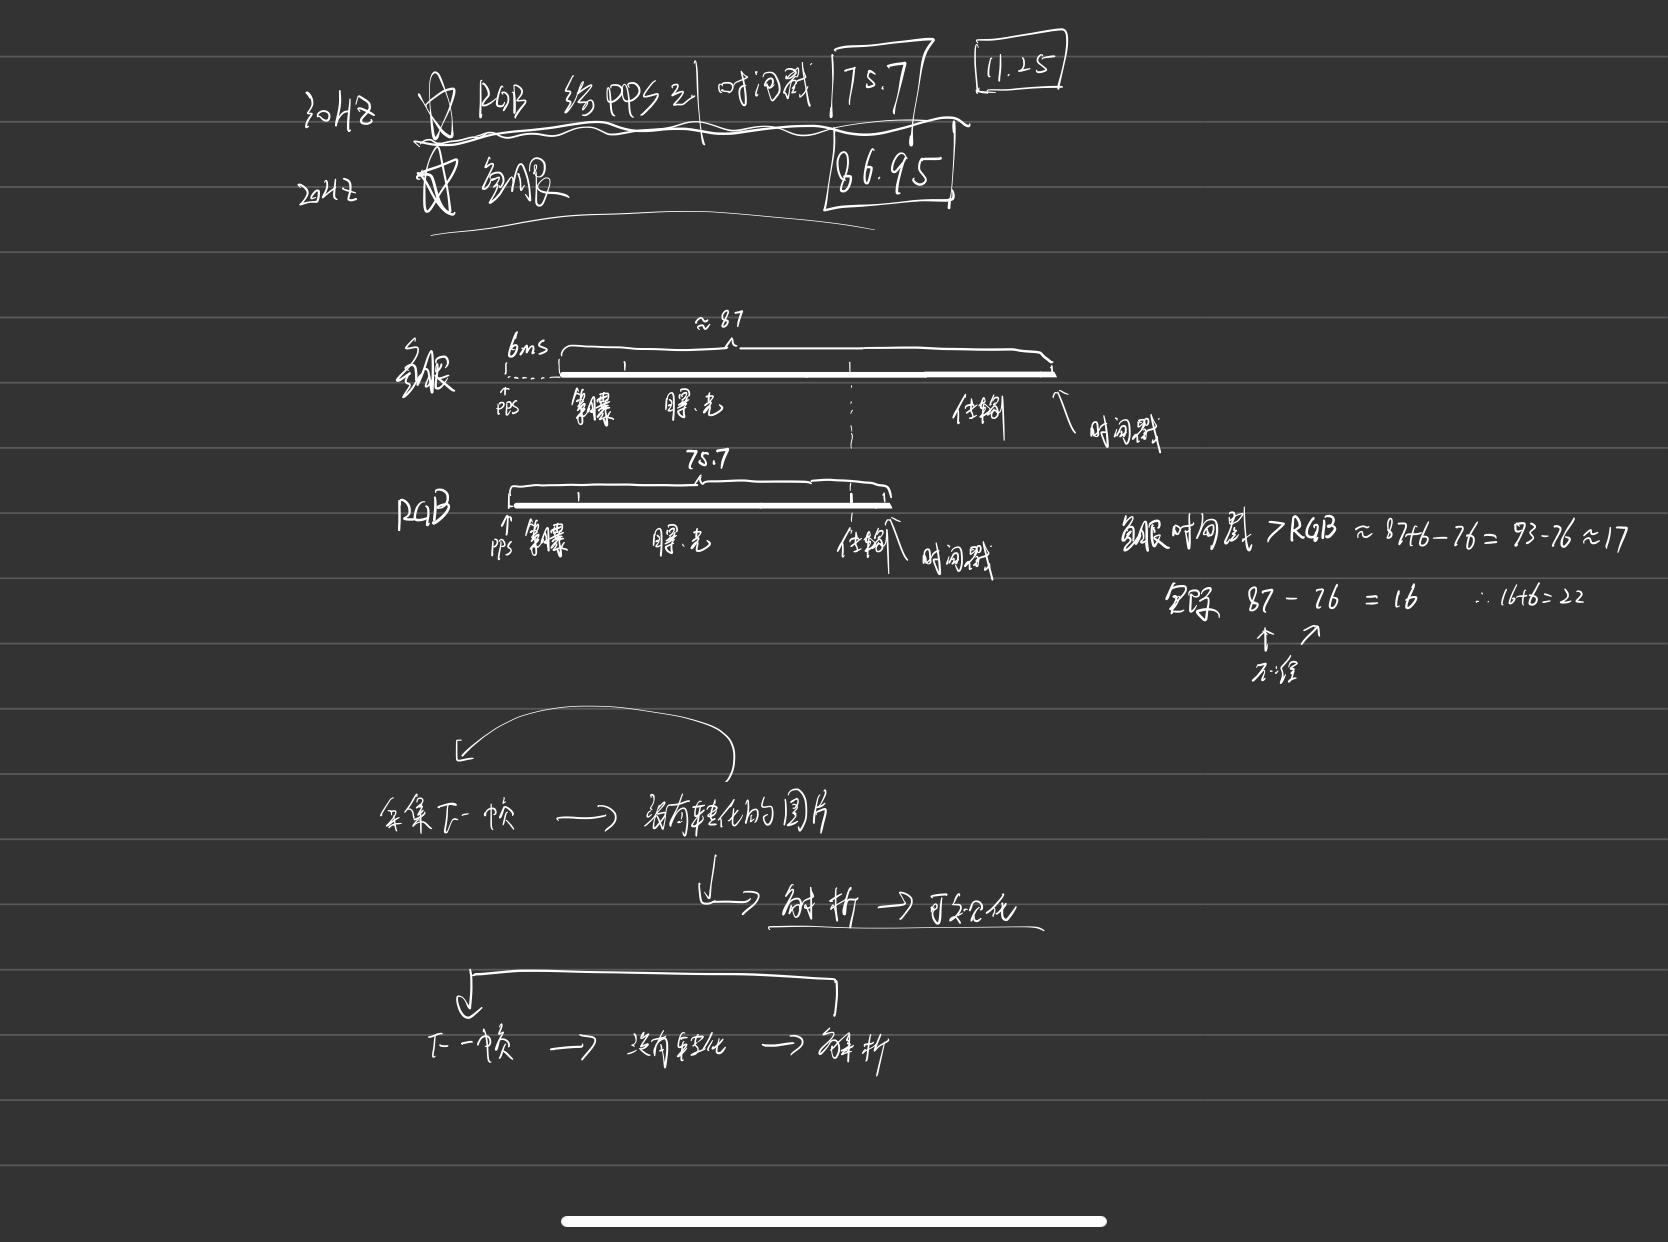 30HZ ☆ RGB 给PPS到 时间戳 75.7 11.25
20HZ ☆ 鱼眼 86.95
≈87
鱼眼 6ms
PPS 等曝 曝光 传输 时间戳
75.7
RGB
PPS 等曝 曝光 传输 时间戳
鱼眼时间戳 > RGB ≈ 87+6-76 = 93-76 ≈ 17
实际 87 - 76 = 16 ∴ 16+6=22
不准
采集下一帧 → 没有转化的图片
解析 → 可视化
下一帧 → 没有转化 → 解析